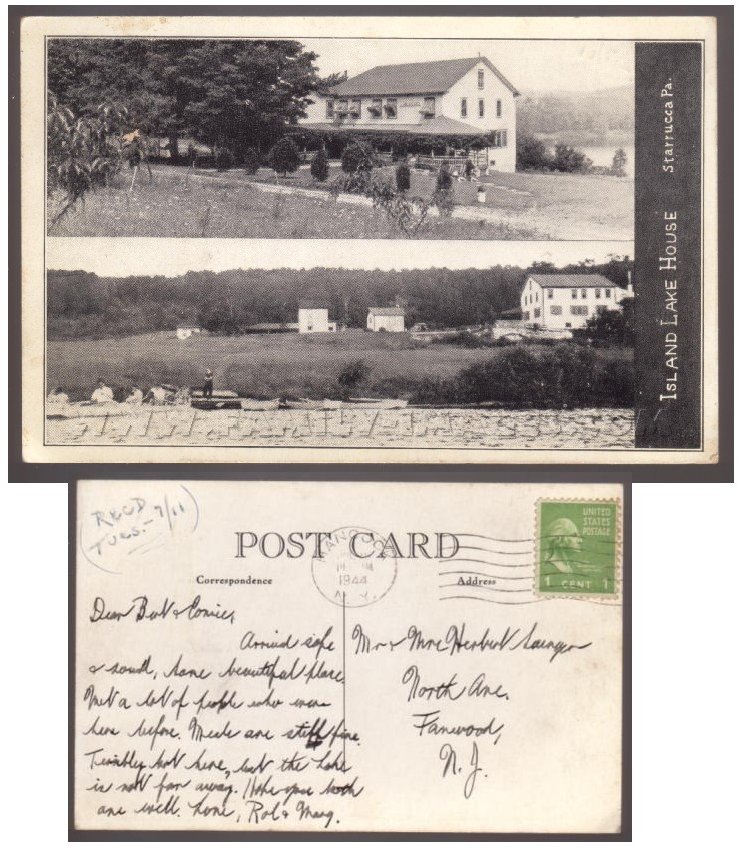 ISLAND LAKE HOUSE Starrucca Pa.
RECD
TUES.- 7/11
POST CARD
1944
N. Y.
UNITED
STATES
POSTAGE
1 CENT 1
Correspondence
Address
Dear Bert & Connie,
Arrived safe
& sound, same beautiful place.
Met a lot of people who were
here before. Meals are still fine.
Terribly hot here, but the lake
is not far away. Hope you both
are well. Love, Rol & Marg.
Mr & Mrs. Herbert Saenger
North Ave.
Fanwood,
N. J.